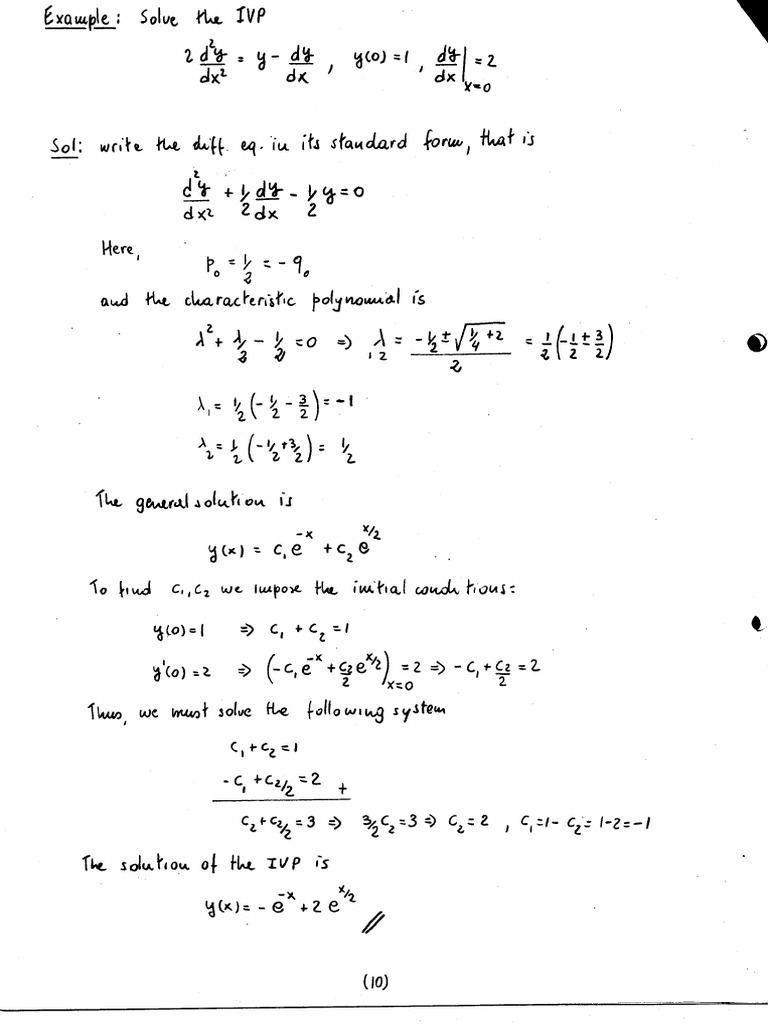 Example: Solve the IVP
2 d²y/dx² = y - dy/dx , y(0) = 1 , dy/dx |x=0 = 2
Sol: write the diff. eq. in its standard form, that is
d²y/dx² + 1/2 dy/dx - 1/2 y = 0
Here,
p₀ = 1/2 = - q₀
and the characteristic polynomial is
λ² + λ/2 - 1/2 = 0 ⇒ λ₁₂ = (-1/2 ± √(1/4 + 2))/2 = 1/2 (-1/2 ± 3/2)
λ₁ = 1/2 (-1/2 - 3/2) = -1
λ₂ = 1/2 (-1/2 + 3/2) = 1/2
The general solution is
y(x) = c₁e^(-x) + c₂e^(x/2)
To find c₁, c₂ we impose the initial conditions:
y(0) = 1 ⇒ c₁ + c₂ = 1
y'(0) = 2 ⇒ (-c₁e^(-x) + c₂/2 e^(x/2))|x=0 = 2 ⇒ -c₁ + c₂/2 = 2
Thus, we must solve the following system
c₁ + c₂ = 1
-c₁ + c₂/2 = 2 +
c₂ + c₂/2 = 3 ⇒ 3/2 c₂ = 3 ⇒ c₂ = 2 , c₁ = 1 - c₂ = 1 - 2 = -1
The solution of the IVP is
y(x) = - e^(-x) + 2 e^(x/2) //
(10)